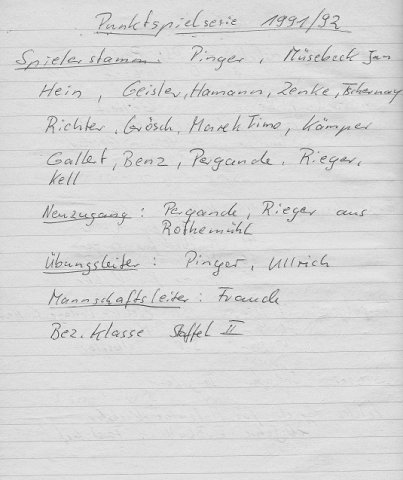 Punktspielserie 1991/92
Spielerstamm: Pinger, Müsebeck Jan
Hein, Geisler, Hamann, Zenke, Tschernay
Richter, Grösch, Marek Timo, Kämper
Gallert, Benz, Pergande, Rieger,
Kell
Neuzugang: Pergande, Rieger aus
Rothemühl
Übungsleiter: Pinger, Ullrich
Mannschaftsleiter: Franck
Bez. Klasse Staffel II